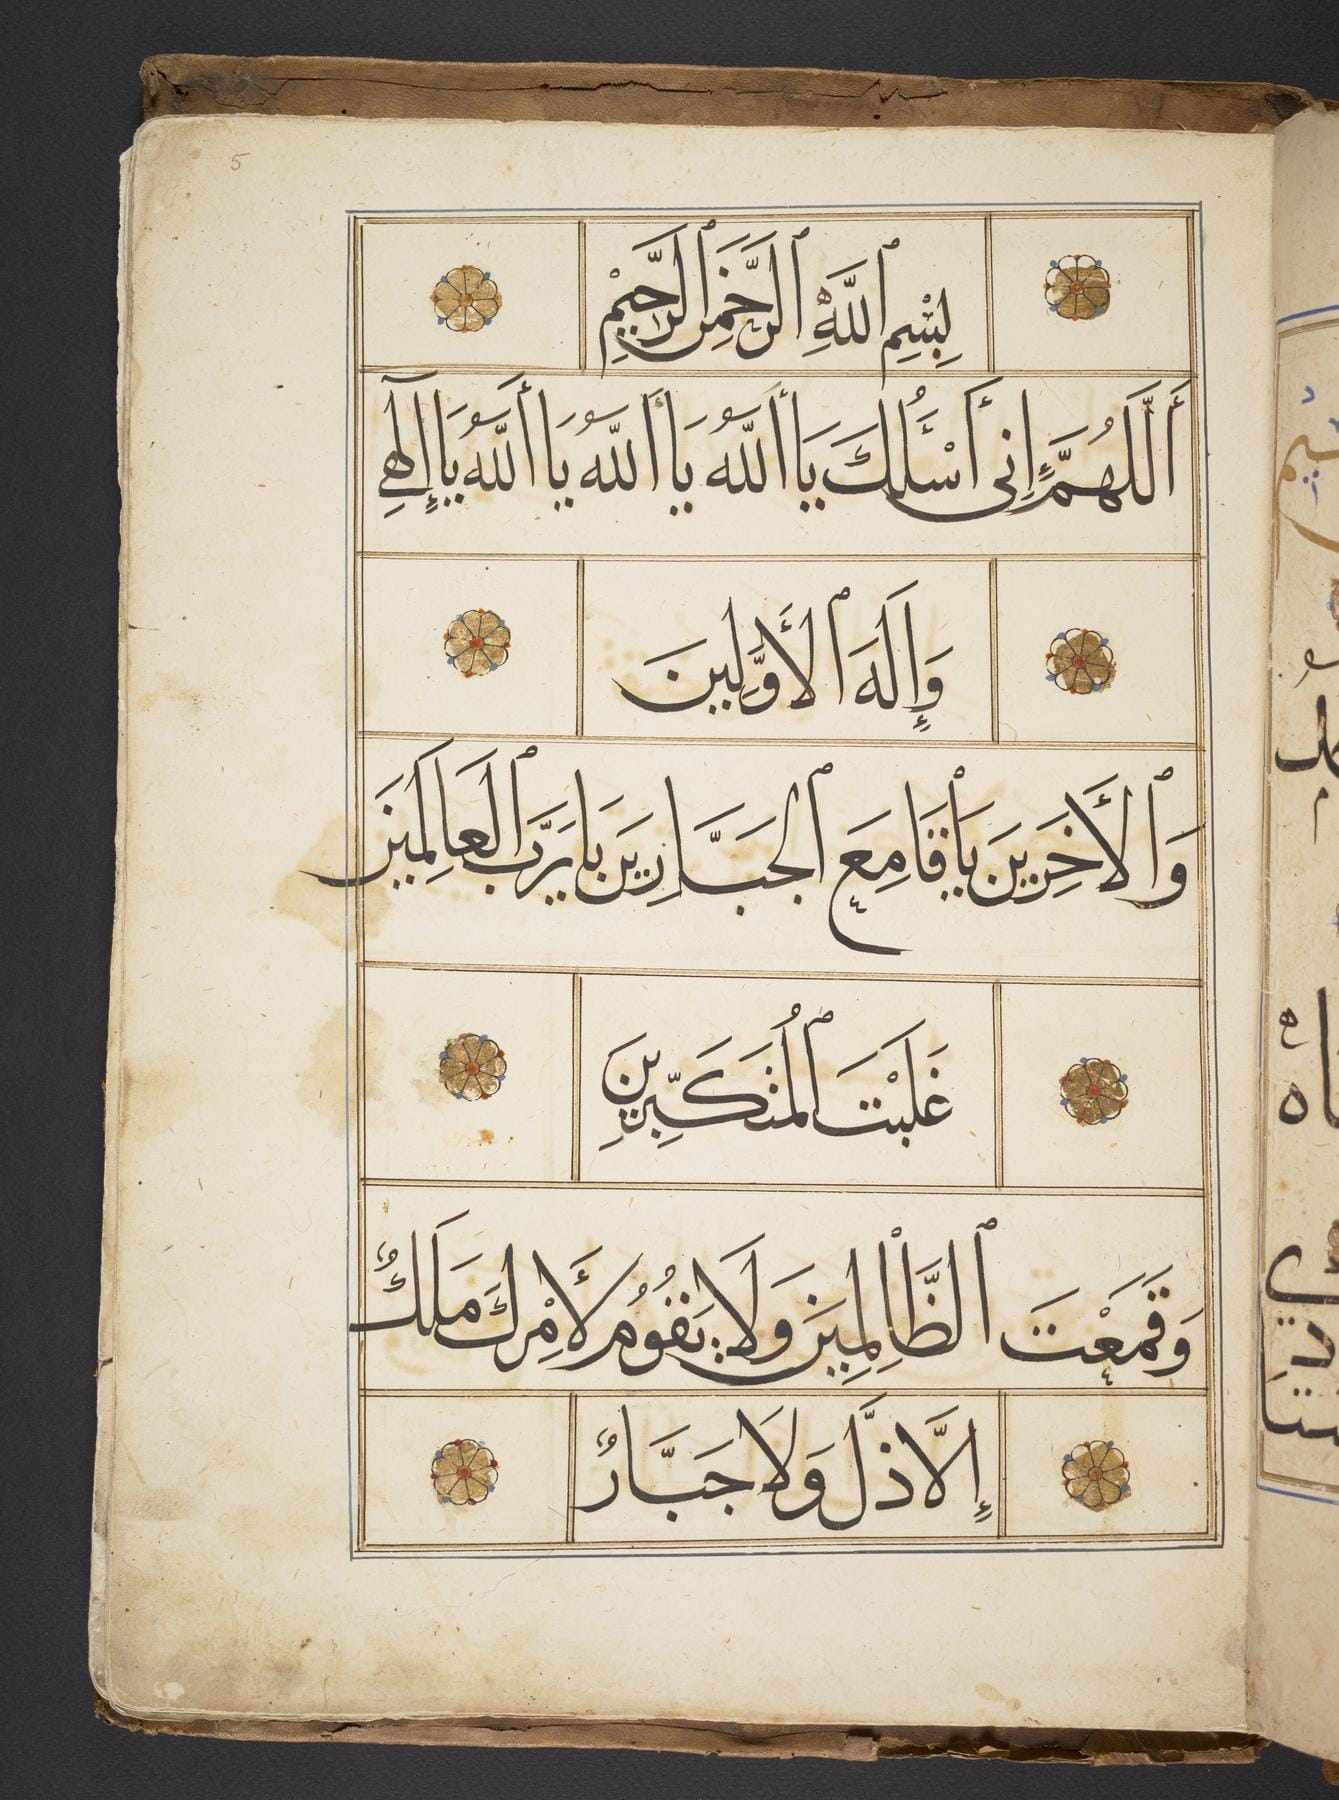 5
بِسْمِ ٱللَّهِ ٱلرَّحْمٰنِ ٱلرَّحِيْمِ
أَللَّهُمَّ إِنِى أَسْئَلُكَ يَا أَللّٰهُ يَا أَللّٰهُ يَا أَللّٰهُ يَا إِلٰهِى
وَإِلَهَ ٱلأَوَّلِينَ
وَٱلأَخِرِينَ يَا قَامِعَ ٱلجَبَّارِينَ يَا رَبَّ ٱلعَالَمِينَ
غَلَبْتَ ٱلمُتَكَبِّرِينَ
وَقَمَعْتَ ٱلظَّالِمِينَ وَلَا يَقُومُ لأَمْرِكَ مَلَكٌ
إِلَّا ذَلَّ وَلَا جَبَّارٌ